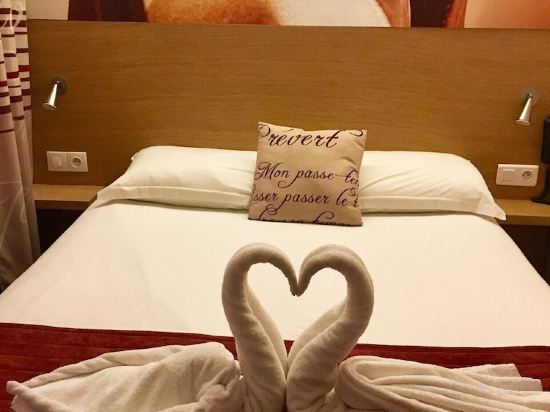 Prévert
Mon passe-tem
isser passer le t